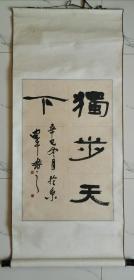 獨步天
下
辛巳冬月於京